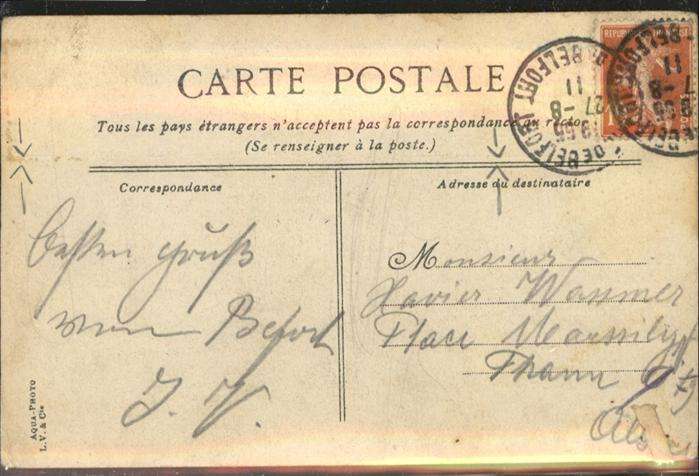 CARTE POSTALE
Tous les pays étrangers n'acceptent pas la correspondance au recto
(Se renseigner à la poste.)
Correspondance
Adresse du destinataire
Besten Gruß
von Befort
J. V.
Monsieur
Xavier Wassmer
Place
Thann
Als
AQUA-PHOTO
L.V. & Cie
BELFORT
11
27-8
BELFORT
11